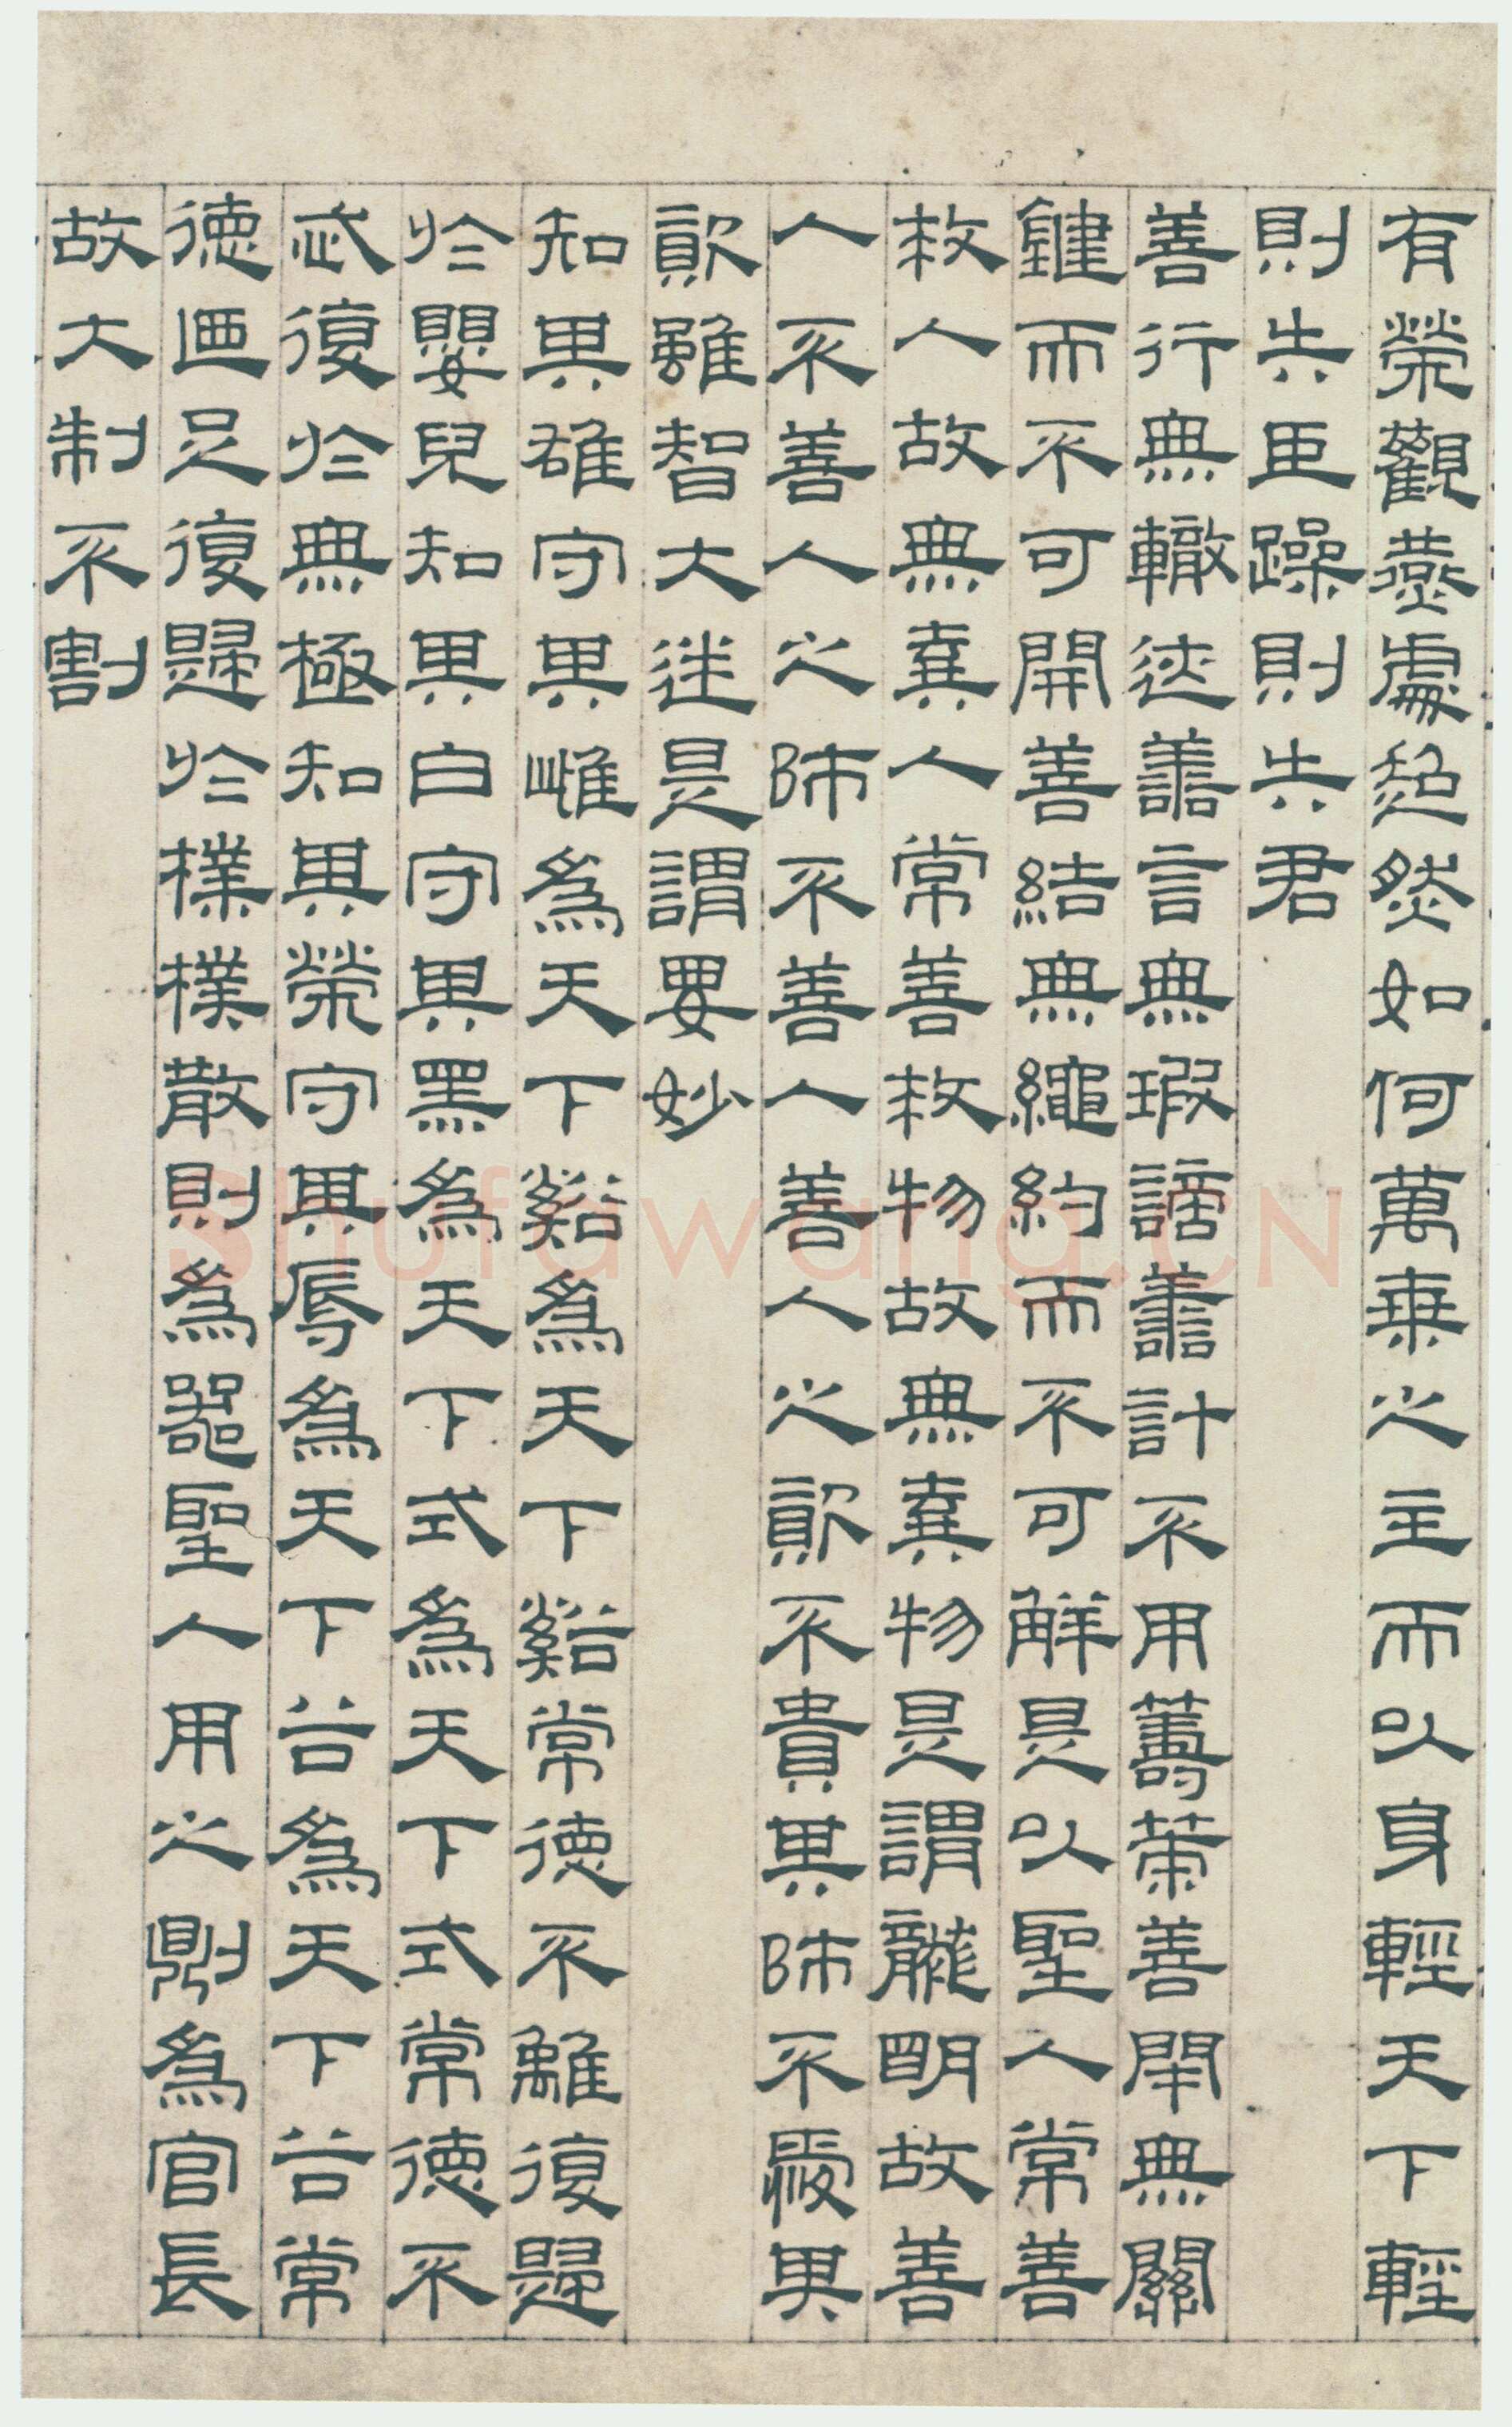 有榮觀燕處超然如何萬乗之主而以身輕天下輕
則失臣躁則失君
善行無轍迹善言無瑕謫善計不用籌策善閉無關
鍵而不可開善結無繩約而不可解是以聖人常善
救人故無棄人常善救物故無棄物是謂襲明故善
人不善人之師不善人善人之資不貴其師不愛其
資雖智大迷是謂要妙
知其雄守其雌為天下谿為天下谿常德不離復歸
於嬰兒知其白守其黑為天下式為天下式常德不
忒復於無極知其榮守其辱為天下谷為天下谷常
德乃足復歸於樸樸散則為器聖人用之則為官長
故大制不割
Shufawang.CN